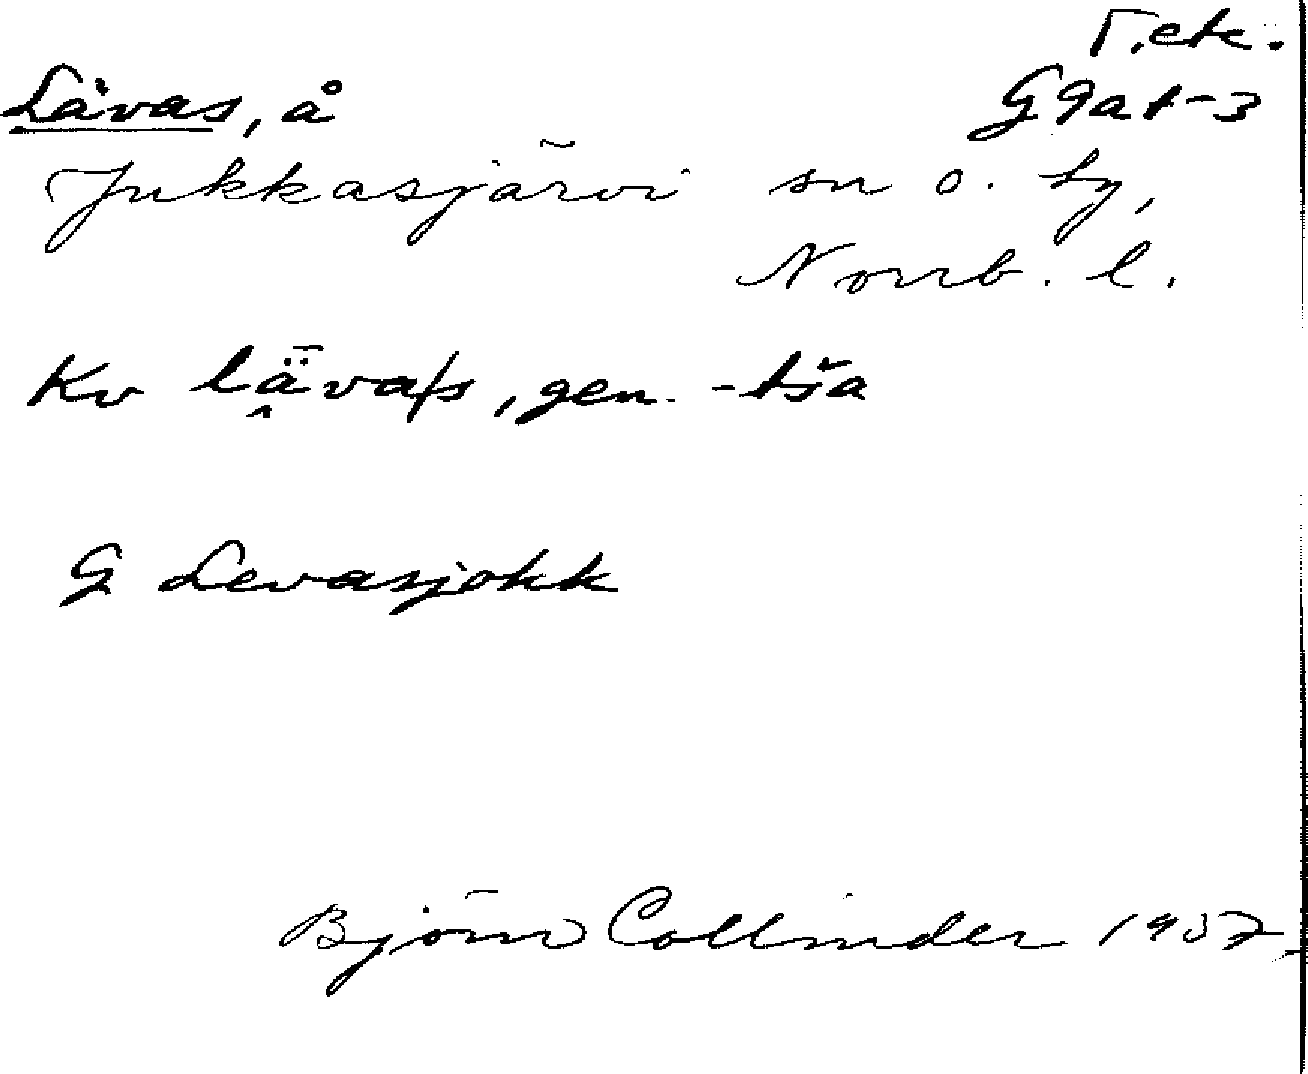 T. etc.
Lävas, å G 9 a t-3
Jukkasjärvi sn o. ty,
Norrb. l.
Kv lǟ̭va/s, gen. -tša
G Levasjokk
Björn Collinder 1957